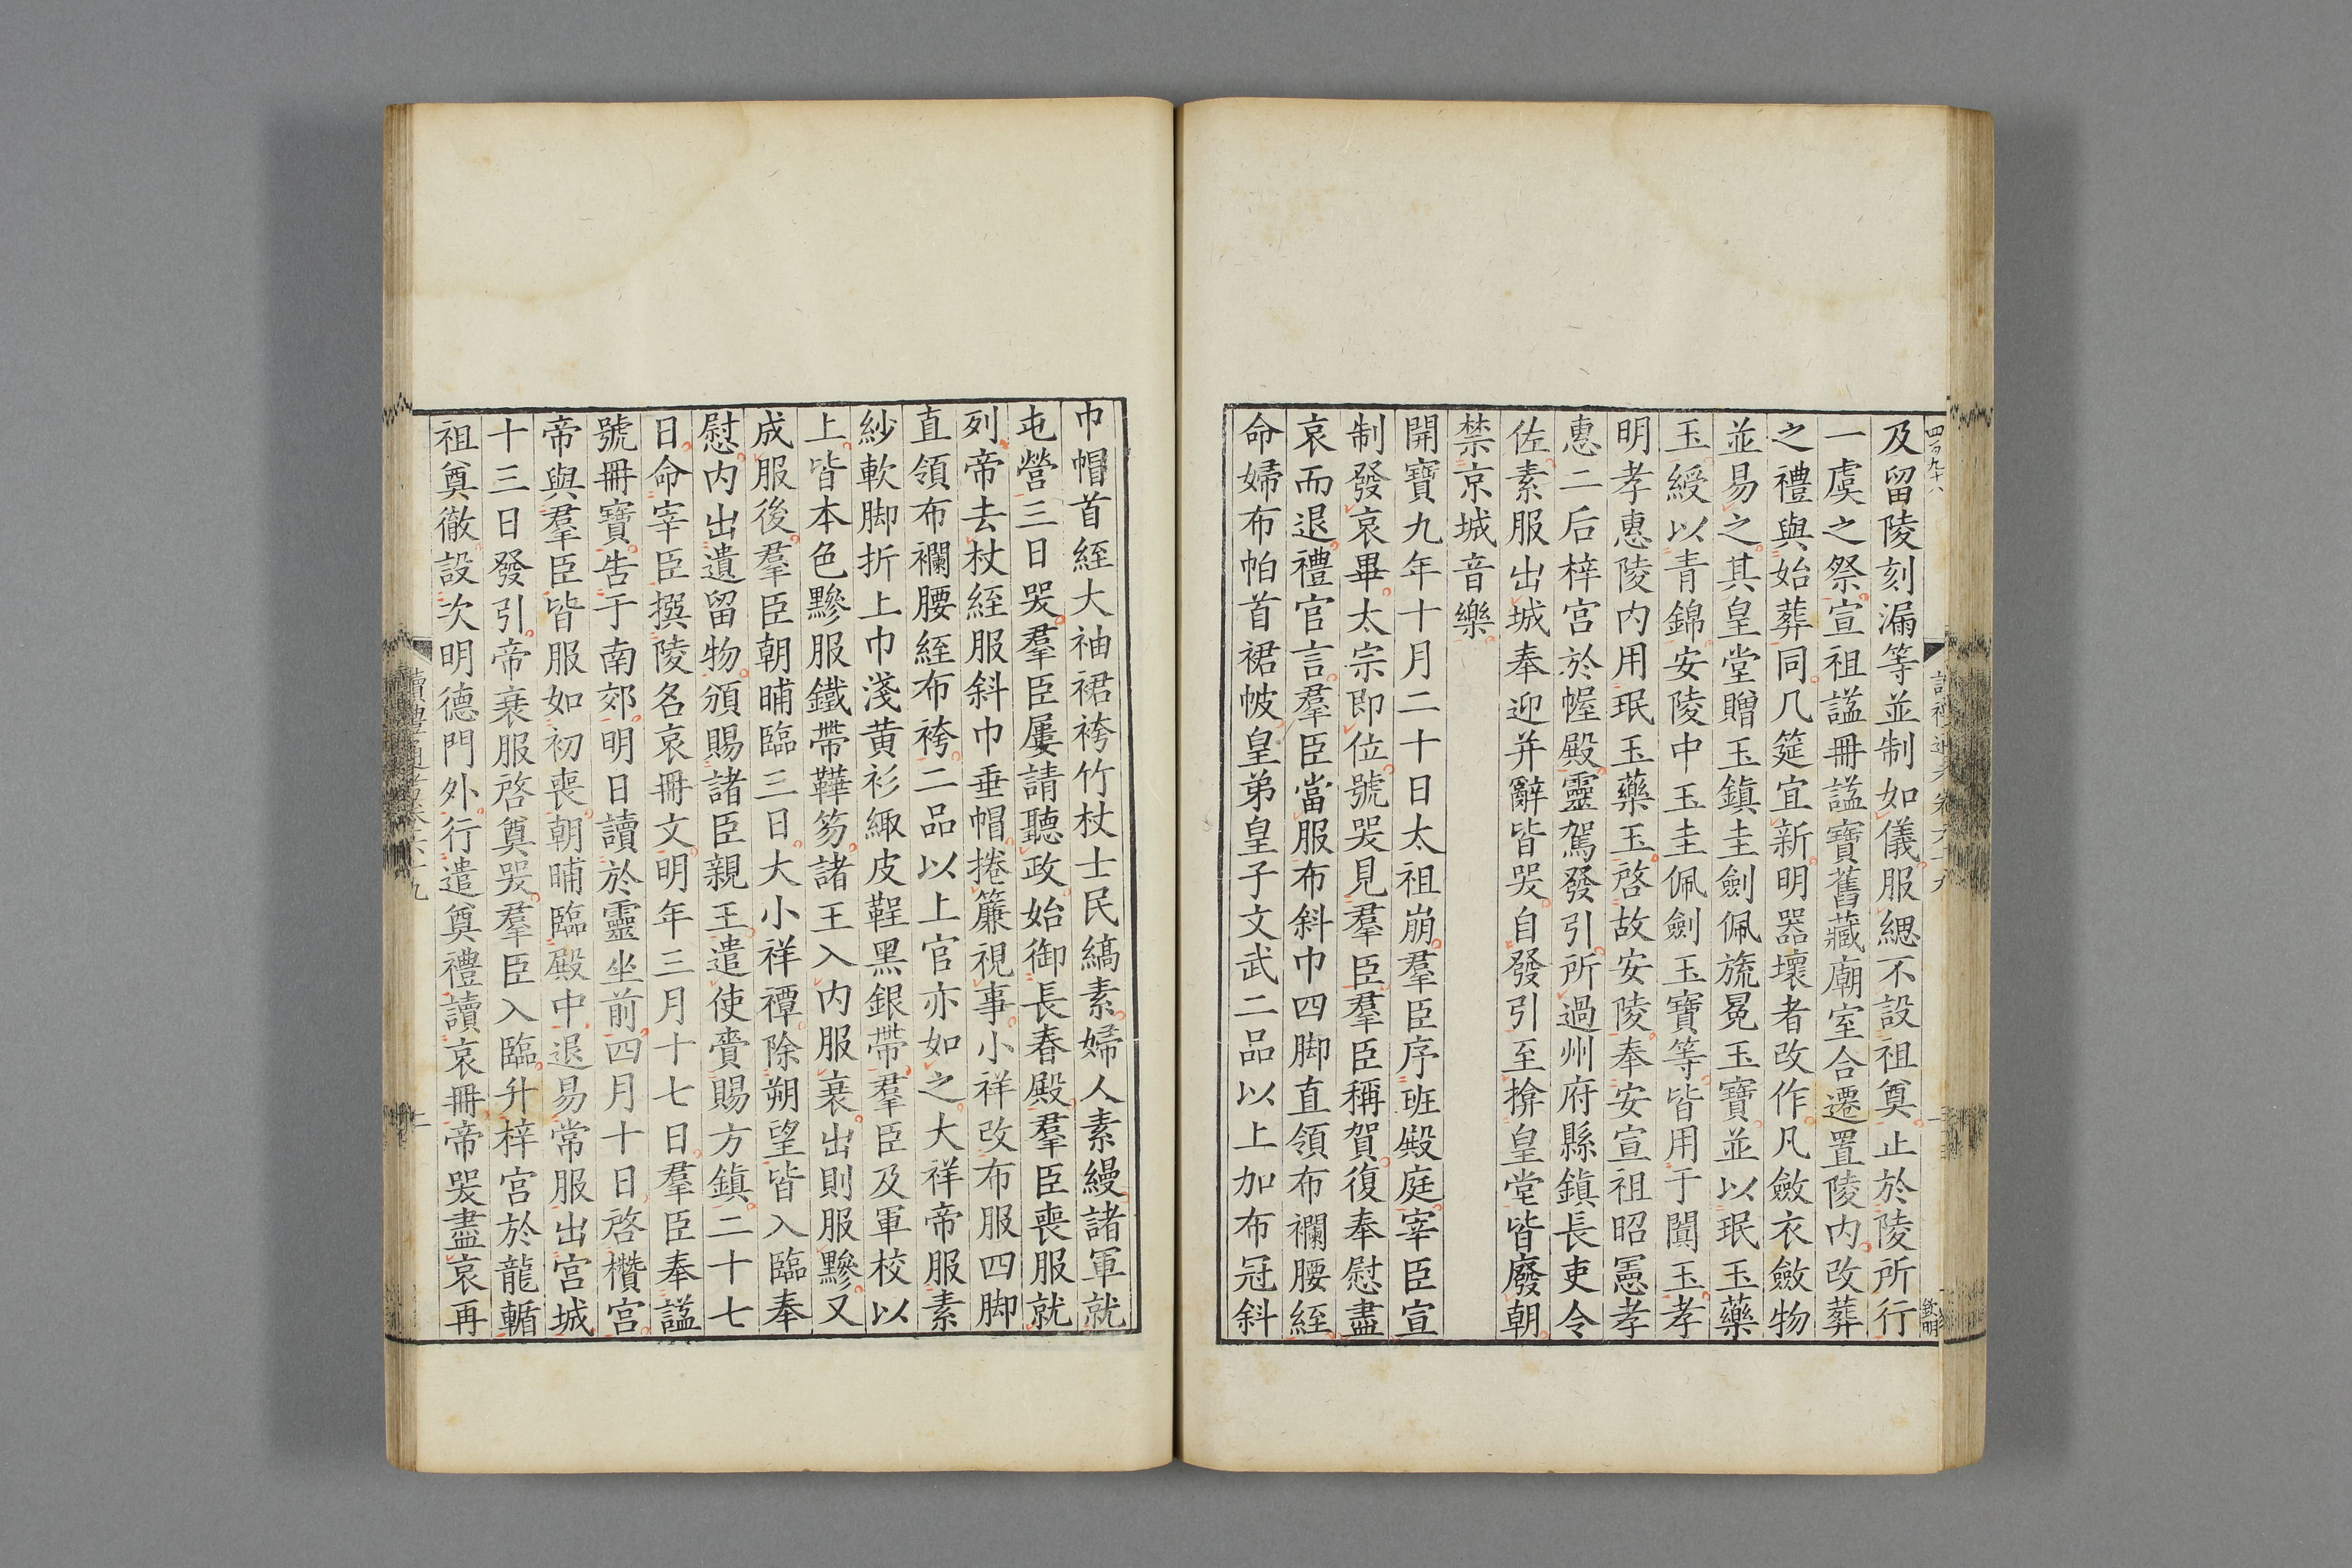 四百九十八
及留陵刻漏等並制如儀服緦不設祖奠止於陵所行
一虞之祭宣祖諡冊諡寶舊藏廟室合遷置陵内改葬
之禮與始葬同几筵宜新明器壞者改作凡斂衣斂物
並易之其皇堂贈玉鎮圭劍佩旒冕玉寶並以珉玉藥
玉綬以青錦安陵中玉圭佩劍玉寶等皆用于闐玉孝
明孝惠陵内用珉玉藥玉啓故安陵奉安宣祖昭憲孝
惠二后梓宮於幄殿靈駕發引所過州府縣鎮長吏令
佐素服出城奉迎并辭皆哭自發引至揜皇堂皆廢朝
禁京城音樂
開寶九年十月二十日太祖崩羣臣序班殿庭宰臣宣
制發哀畢太宗即位號哭見羣臣羣臣稱賀復奉慰盡
哀而退禮官言羣臣當服布斜巾四脚直領布襴腰絰
命婦布帕首裙帔皇弟皇子文武二品以上加布冠斜
巾帽首絰大袖裙袴竹杖士民縞素婦人素縵諸軍就
屯營三日哭羣臣屢請聽政始御長春殿羣臣喪服就
列帝去杖絰服斜巾垂帽捲簾視事小祥改布服四脚
直領布襴腰絰布袴二品以上官亦如之大祥帝服素
紗軟脚折上巾淺黄衫緅皮鞓黑銀帶羣臣及軍校以
上皆本色黲服鐵帶鞾笏諸王入内服衰出則服黲又
成服後羣臣朝晡臨三日大小祥禫除朔望皆入臨奉
慰内出遺留物頒賜諸臣親王遣使賫賜方鎮二十七
日命宰臣撰陵名哀冊文明年三月十七日羣臣奉諡
號冊寶告于南郊明日讀於靈坐前四月十日啓欑宮
帝與羣臣皆服如初喪朝晡臨殿中退易常服出宮城
十三日發引帝衰服啓奠哭羣臣入臨升梓宮於龍輴
祖奠徹設次明德門外行遣奠禮讀哀冊帝哭盡哀再
讀禮通考卷六十九